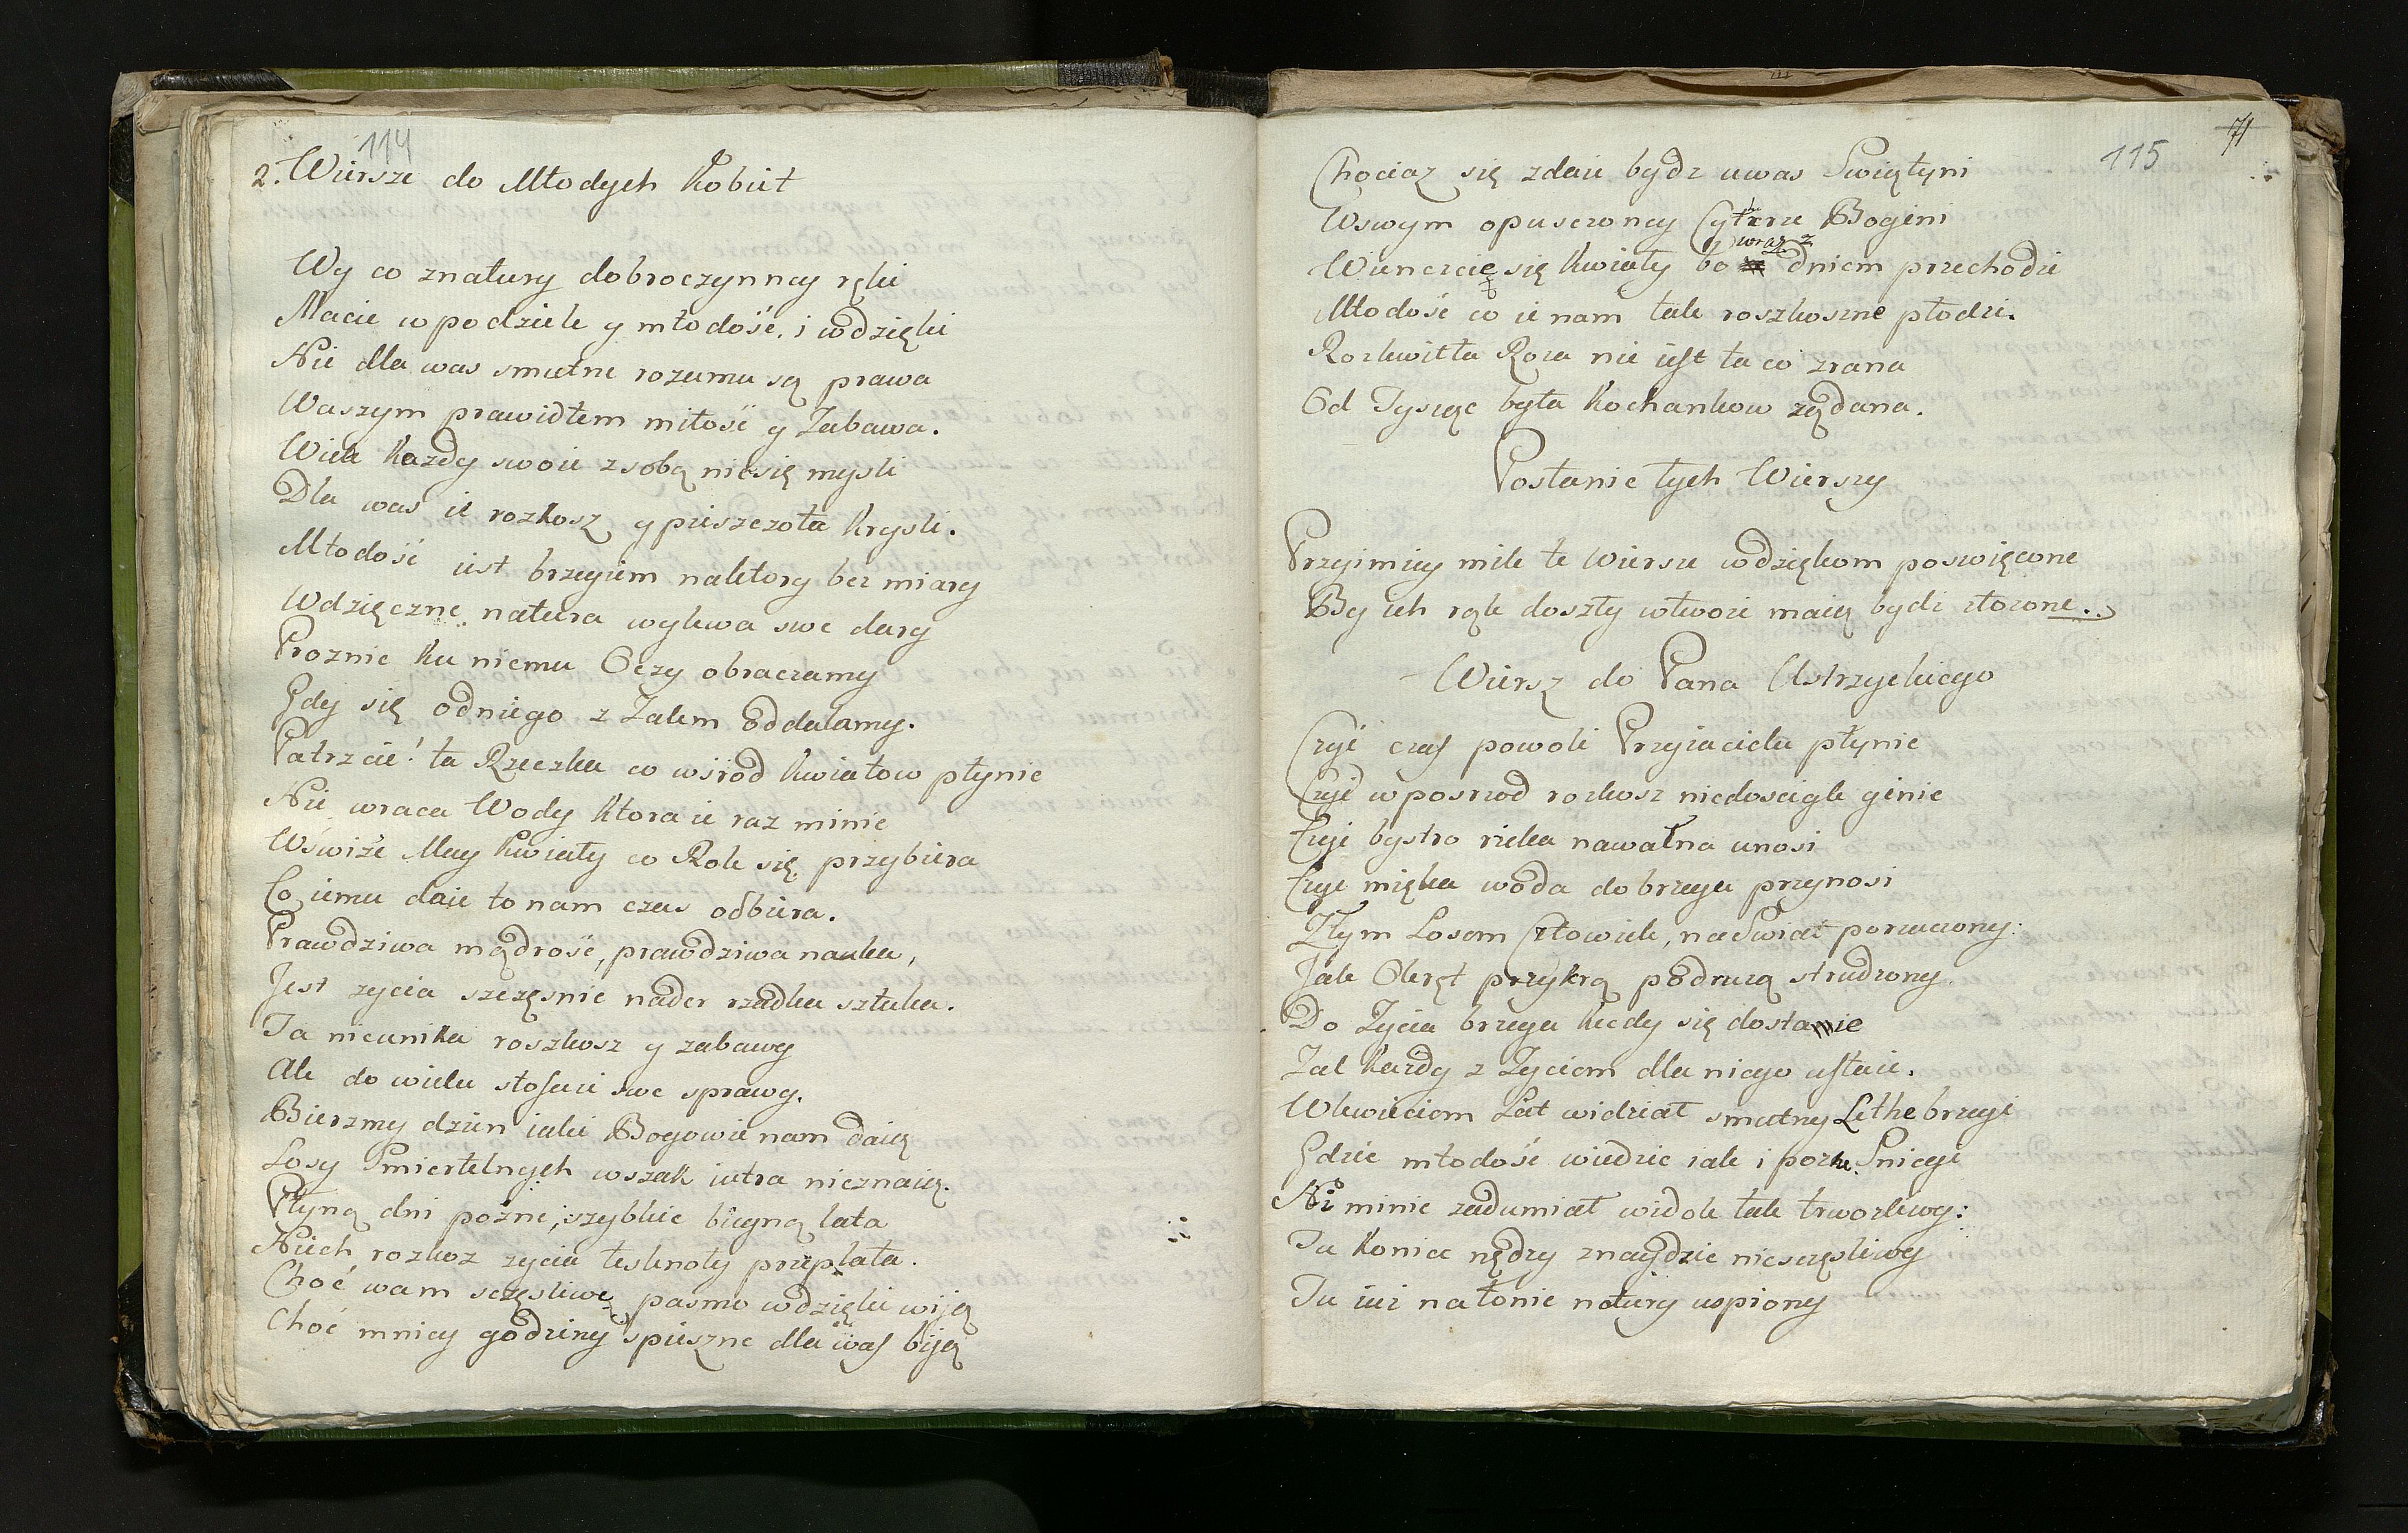 114
2. Wiersze do Młodych Kobiet
Wy co znatury dobroczynney ręki
Macie w podziele y młodość, i wdzięki
Nie dla was smutne rozumu są prawa
Waszym prawidłem miłość y Zabawa.
Wiek Każdy swoie z sobą niesię mysli
Dla was ie rozkosz y pieszczota Krysli.
Młodość iest brzegiem naktory bez miary
Wdzięczne natura wylewa swe dary
Proznie ku niemu Oczy obraczamy
Gdy się odniego z Zalem oddalamy.
Patrzcie! ta Rzeczka co wśrod kwiatow płynie
Nie wraca Wody Ktora ie raz minie
Wświże May kwiaty co Rok się przybiera
Co iemu daie to nam czas odbiera.
Prawdziwa mądrość, prawdziwa nauka,
Jest zycia szczęsnie nader rzadka sztuka.
Ta nieunika roszkosz y zabawy
Ale do wieku stosuie swe sprawy.
Bierzmy dzien iaki Bogowie nam daią
Losy Smiertelnych wszak iutra nieznaią.
Płyną dni pożne, szybkie biegną lata
Niech rozkosz zycia tesknoty przeplata.
Choć wam sczęsliwe pasmo wdzięki wiją
Choć mniey godziny spieszne dla was biją
115
71
Chociaz się zdaie bydz uwas Swiętyni
Wswym opuszconey Cytrze Bogini
Wienczcie się kwiaty bo wraz z dniem przechodzi
Młodość co ie nam tak roszkoszne płodzi.
Rozkwitła Roza nie iest ta co zrana
Od Tysięc była Kochankow ządana.
Posłanie tych Wierszy
Przyimiey mile te Wiersze wdziękom poswięcone
By ich rąk doszły wtwoie maią bydz złozone.
Wiersz do Pana Ustrzyckiego
Czyi czas powoli Przyiacielu płynie
Czyi w posrzod rozkosz niedoscigle ginie
Czyi bystro rzeka nawałna unosi
Czyi miękka woda do brzegu przynosi
Złym Losem Człowiek, na Swiat porzucony:
Jak Okręt przykrą podrużą strudzony.
Do Zycia brzegu kiedy się dostanie
Zal każdy z Zyciem dla niego ustaie.
Wkwieciem Lat widział smutny Lethe brzegi
Gdzie młodość wiedzie iak i pozne Sniegi
Ni minie zadumiał widok tak trwozliwy:
Tu koniec nędzy znaydzie niesczęsliwy
Tu iuż na łonie natury uspiony